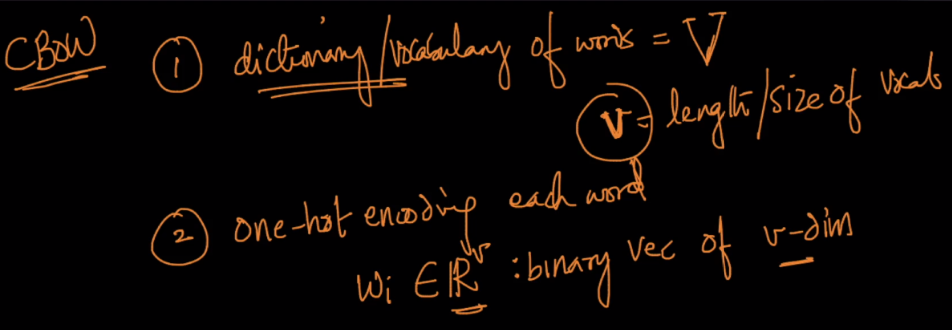 CBOW
① dictionary/vocabulary of words = V
v = length/size of vocab
② one-hot encoding each word
Wi ∈ ℝ^v : binary vec of v-dim